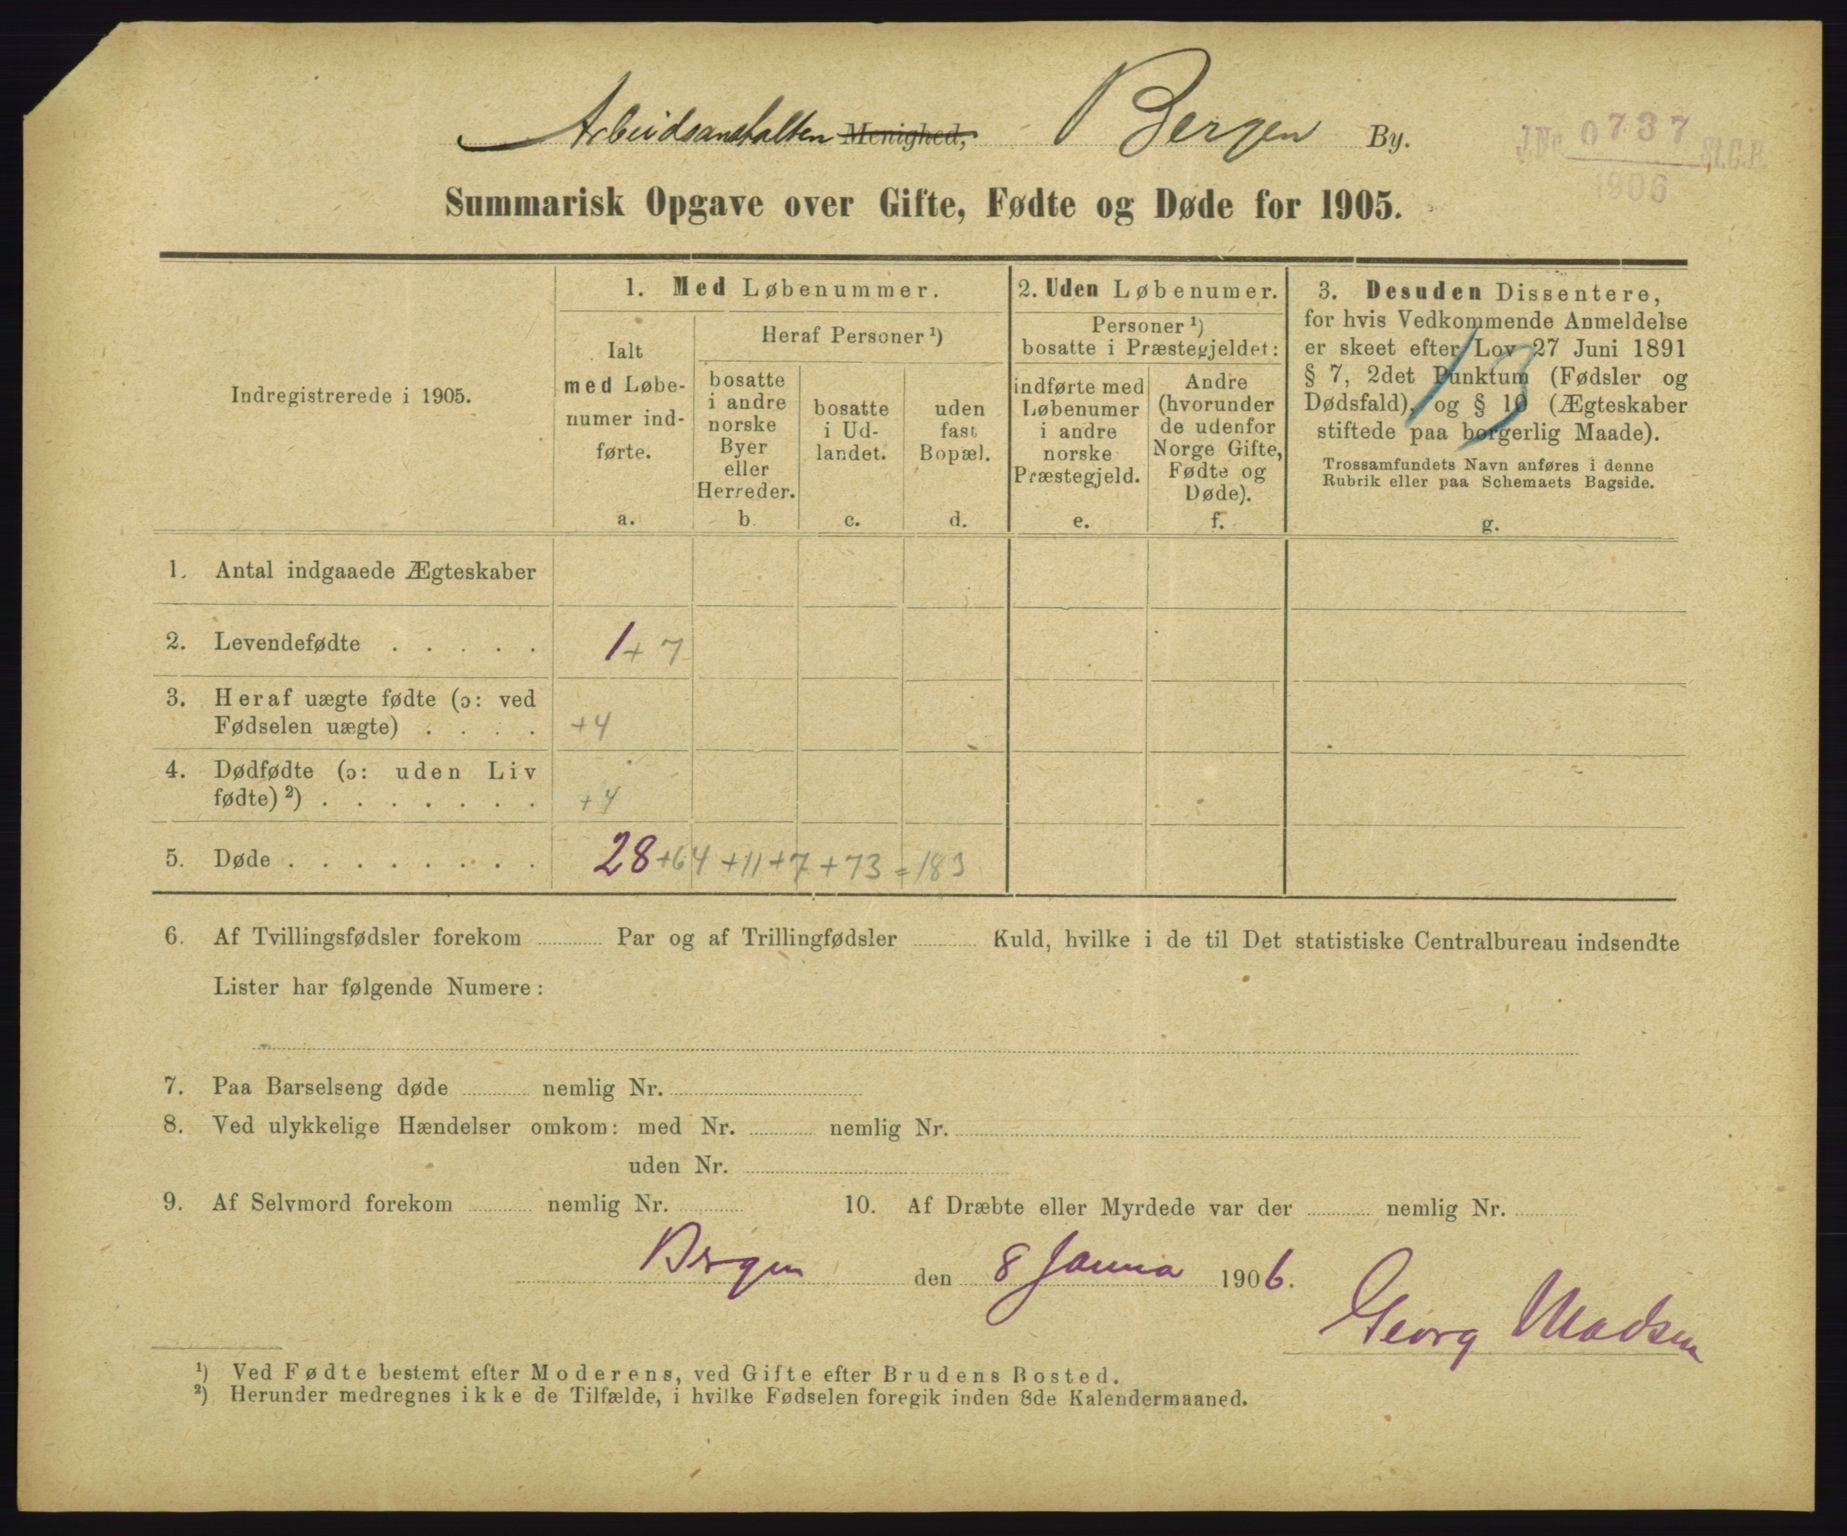 Arbeidsanstalten Menighed, Bergen By.
J.Nr. 0737 St.C.B.
1906
Summarisk Opgave over Gifte, Fødte og Døde for 1905.
Indregistrerede i 1905.
1. Med Løbenummer.
Ialt
med Løbe-
numer ind-
førte.
a.
Heraf Personer ¹)
bosatte
i andre
norske
Byer
eller
Herreder.
b
bosatte
i Ud-
landet.
c.
uden
fast
Bopæl.
d.
2. Uden Løbenumer.
Personer ¹)
bosatte i Præstegjeldet:
indførte med
Løbenumer
i andre
norske
Præstegjeld.
e.
Andre
(hvorunder
de udenfor
Norge Gifte,
Fødte og
Døde).
f.
3. Desuden Dissentere,
for hvis Vedkommende Anmeldelse
er skeet efter Lov 27 Juni 1891
§ 7, 2det Punktum (Fødsler og
Dødsfald), og § 10 (Ægteskaber
stiftede paa borgerlig Maade).
Trossamfundets Navn anføres i denne
Rubrik eller paa Schemaets Bagside.
g.
13
1. Antal indgaaede Ægteskaber
2. Levendefødte . . . . . 1 + 7
3. Heraf uægte fødte (ɔ: ved
Fødselen uægte) . . . . +4
4. Dødfødte (ɔ: uden Liv
fødte) ²) . . . . . . . +4
5. Døde . . . . . . . . 28 +64 +11+7 +73 = 183
6. Af Tvillingsfødsler forekom ............ Par og af Trillingfødsler ............ Kuld, hvilke i de til Det statistiske Centralbureau indsendte
Lister har følgende Numere:
7. Paa Barselseng døde ............ nemlig Nr. ............
8. Ved ulykkelige Hændelser omkom: med Nr. ............ nemlig Nr. ............
uden Nr. ............
9. Af Selvmord forekom ............ nemlig Nr. ............ 10. Af Dræbte eller Myrdede var der ............ nemlig Nr. ............
Bergen den 8 Janua 1906.
Georg Madsen
¹) Ved Fødte bestemt efter Moderens, ved Gifte efter Brudens Bosted.
²) Herunder medregnes ikke de Tilfælde, i hvilke Fødselen foregik inden 8de Kalendermaaned.